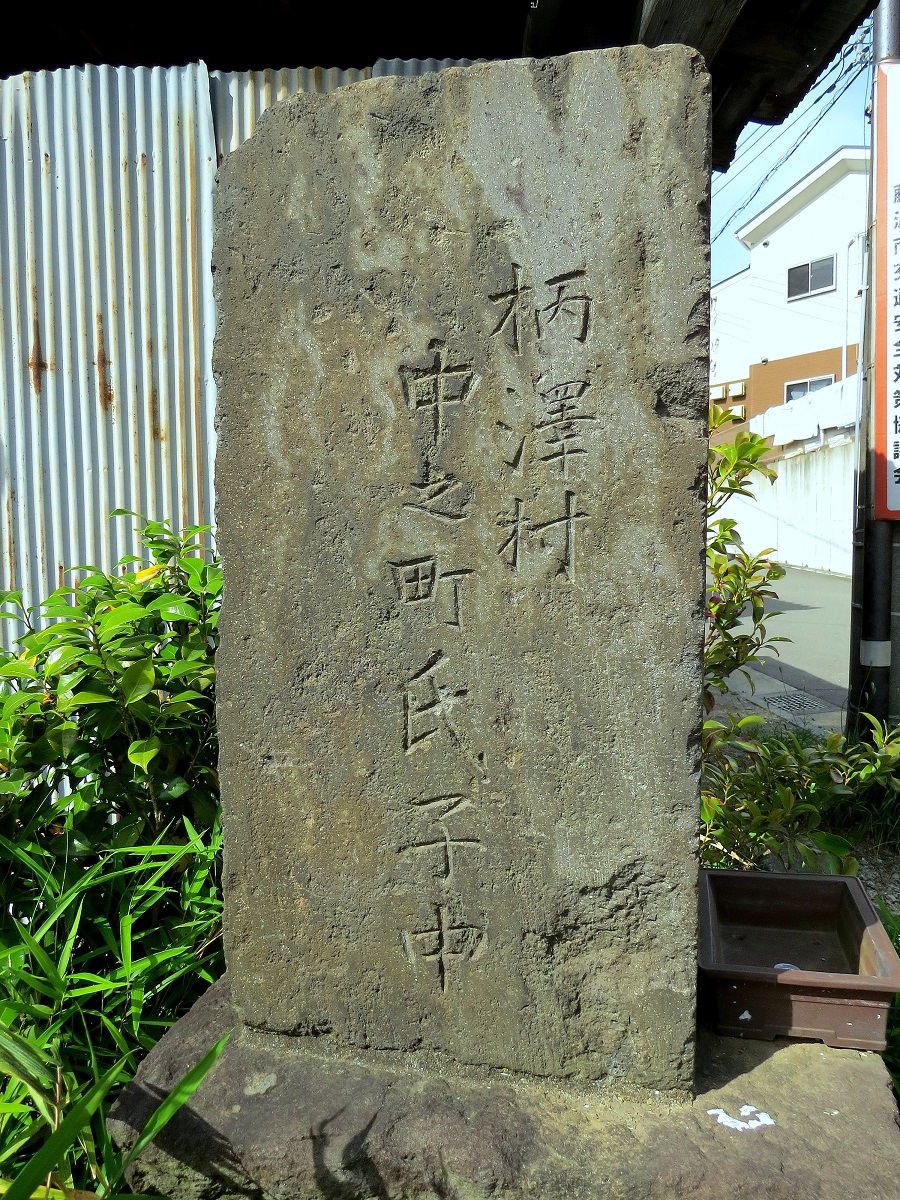 柄澤村
中之町氏子中
藤沢市交通安全対策協議会